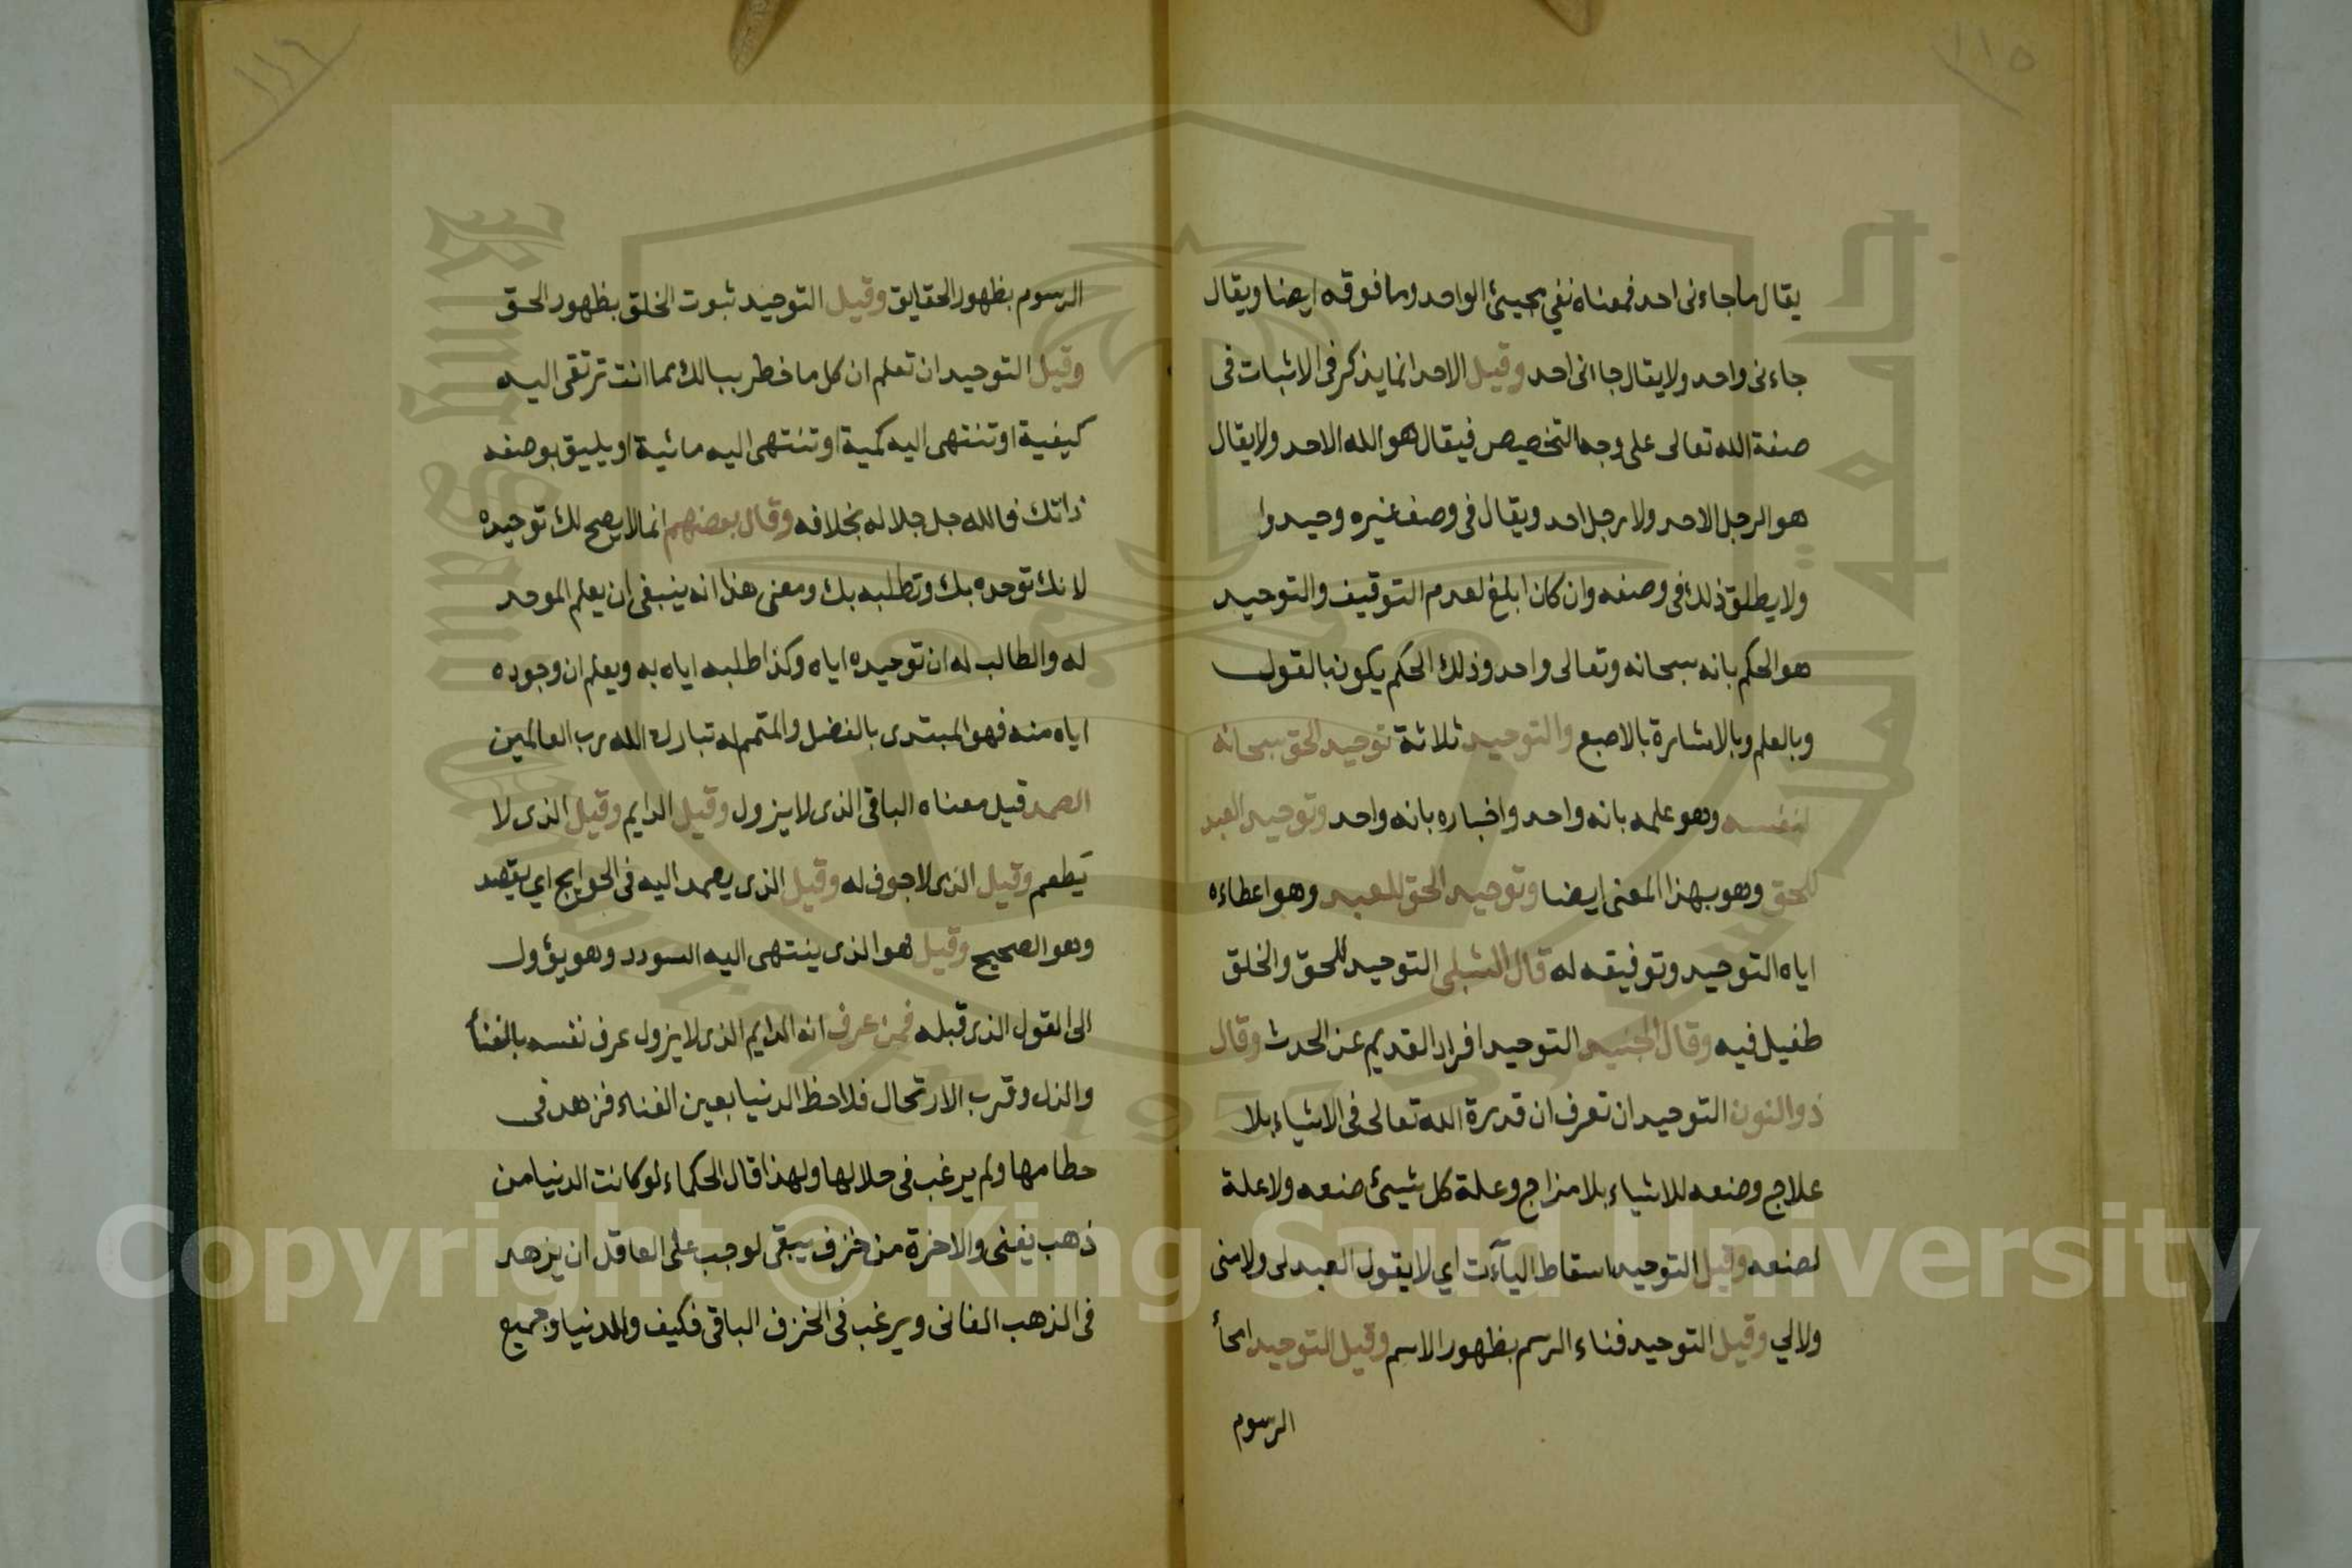 ١١٥
يقال ما جاءنى احد فمعناه نفي مجيئ الواحد وما فوقه ايضا ويقال
جاءنى واحد ولا يقال جاانى احد وقيل الاحد انما يذكر فى الاثبات فى
صفة الله تعالى على وجه التخصيص فيقال هو الله الاحد ولا يقال
هو الرجل الاحد ولا رجل احد ويقال فى وصف غيره وحيدوا
ولا يطلق ذلك فى وصفه وان كان ابلغ لعدم التوقيف والتوحيد
هو الحكم بانه سبحانه وتعالى واحد وذلك الحكم يكون بالقول
وبالعلم وبالاشارة بالاصبع والتوحيد ثلاثة توحيد الحق سبحانه
لنفسه وهو علمه بانه واحد واخباره بانه واحد وتوحيد العبد
للحق وهو بهذا المعنى ايضا وتوحيد الحق للعبد وهو اعطاءه
اياه التوحيد وتوفيقه له قال الشبلى التوحيد للحق والخلق
طفيل فيه وقال الجنيد التوحيد افراد القديم عن الحدث وقال
ذو النون التوحيد ان تعرف ان قدرة الله تعالى فى الاشياء بلا
علاج وصنعه للاشياء بلا مزاج وعلة كل شيئ صنعه ولا علة
لصنعه وقيل التوحيد اسقاط اليآءت اي لا يقول العبد لى ولا منى
ولا لي وقيل التوحيد فناء الرسم بظهور الاسم وقيل التوحيد امحأ
الرسوم
١١٦
الرسوم بظهور الحقايق وقيل التوحيد ثبوت الخلق بظهور الحق
وقيل التوحيد ان تعلم ان كل ما خطر ببالك مما انت ترتقى اليه
كيفية او تنتهى اليه كمية او تنتهى اليه مائية او يليق بوصفه
ذاتك فالله جل جلاله بخلافه وقال بعضهم انما لا يصح لك توحيده
لانك توحده بك وتطلبه بك ومعنى هذا انه ينبغى ان يعلم الموحد
له والطالب له ان توحيده اياه وكذا طلبه اياه به ويعلم ان وجوده
اياه منه فهو المبتدى بالفضل والمتمم له تبارك الله رب العالمين
الصمد قيل معناه الباقى الذى لا يزول وقيل الدايم وقيل الذى لا
يَطعم وقيل الذى لا جوف له وقيل الذى يصمد اليه فى الحوايج اي يقصد
وهو الصحيح وقيل هو الذى ينتهى اليه السودد وهو يؤول
الى القول الذى قبله فمن عرف انه الدايم الذى لا يزول عرف نفسه بالفنأ
والذل وقرب الارتحال فلاحظ الدنيا بعين الفناء فزهد فى
حطامها ولم يرغب فى حلالها ولهذا قال الحكماء لو كانت الدنيا من
ذهب يفنى والاخرة من خزف يبقى لوجب على العاقل ان يزهد
فى الذهب الفانى ويرغب فى الخزف الباقى فكيف والدنيا وجميع
Copyright © King Saud University